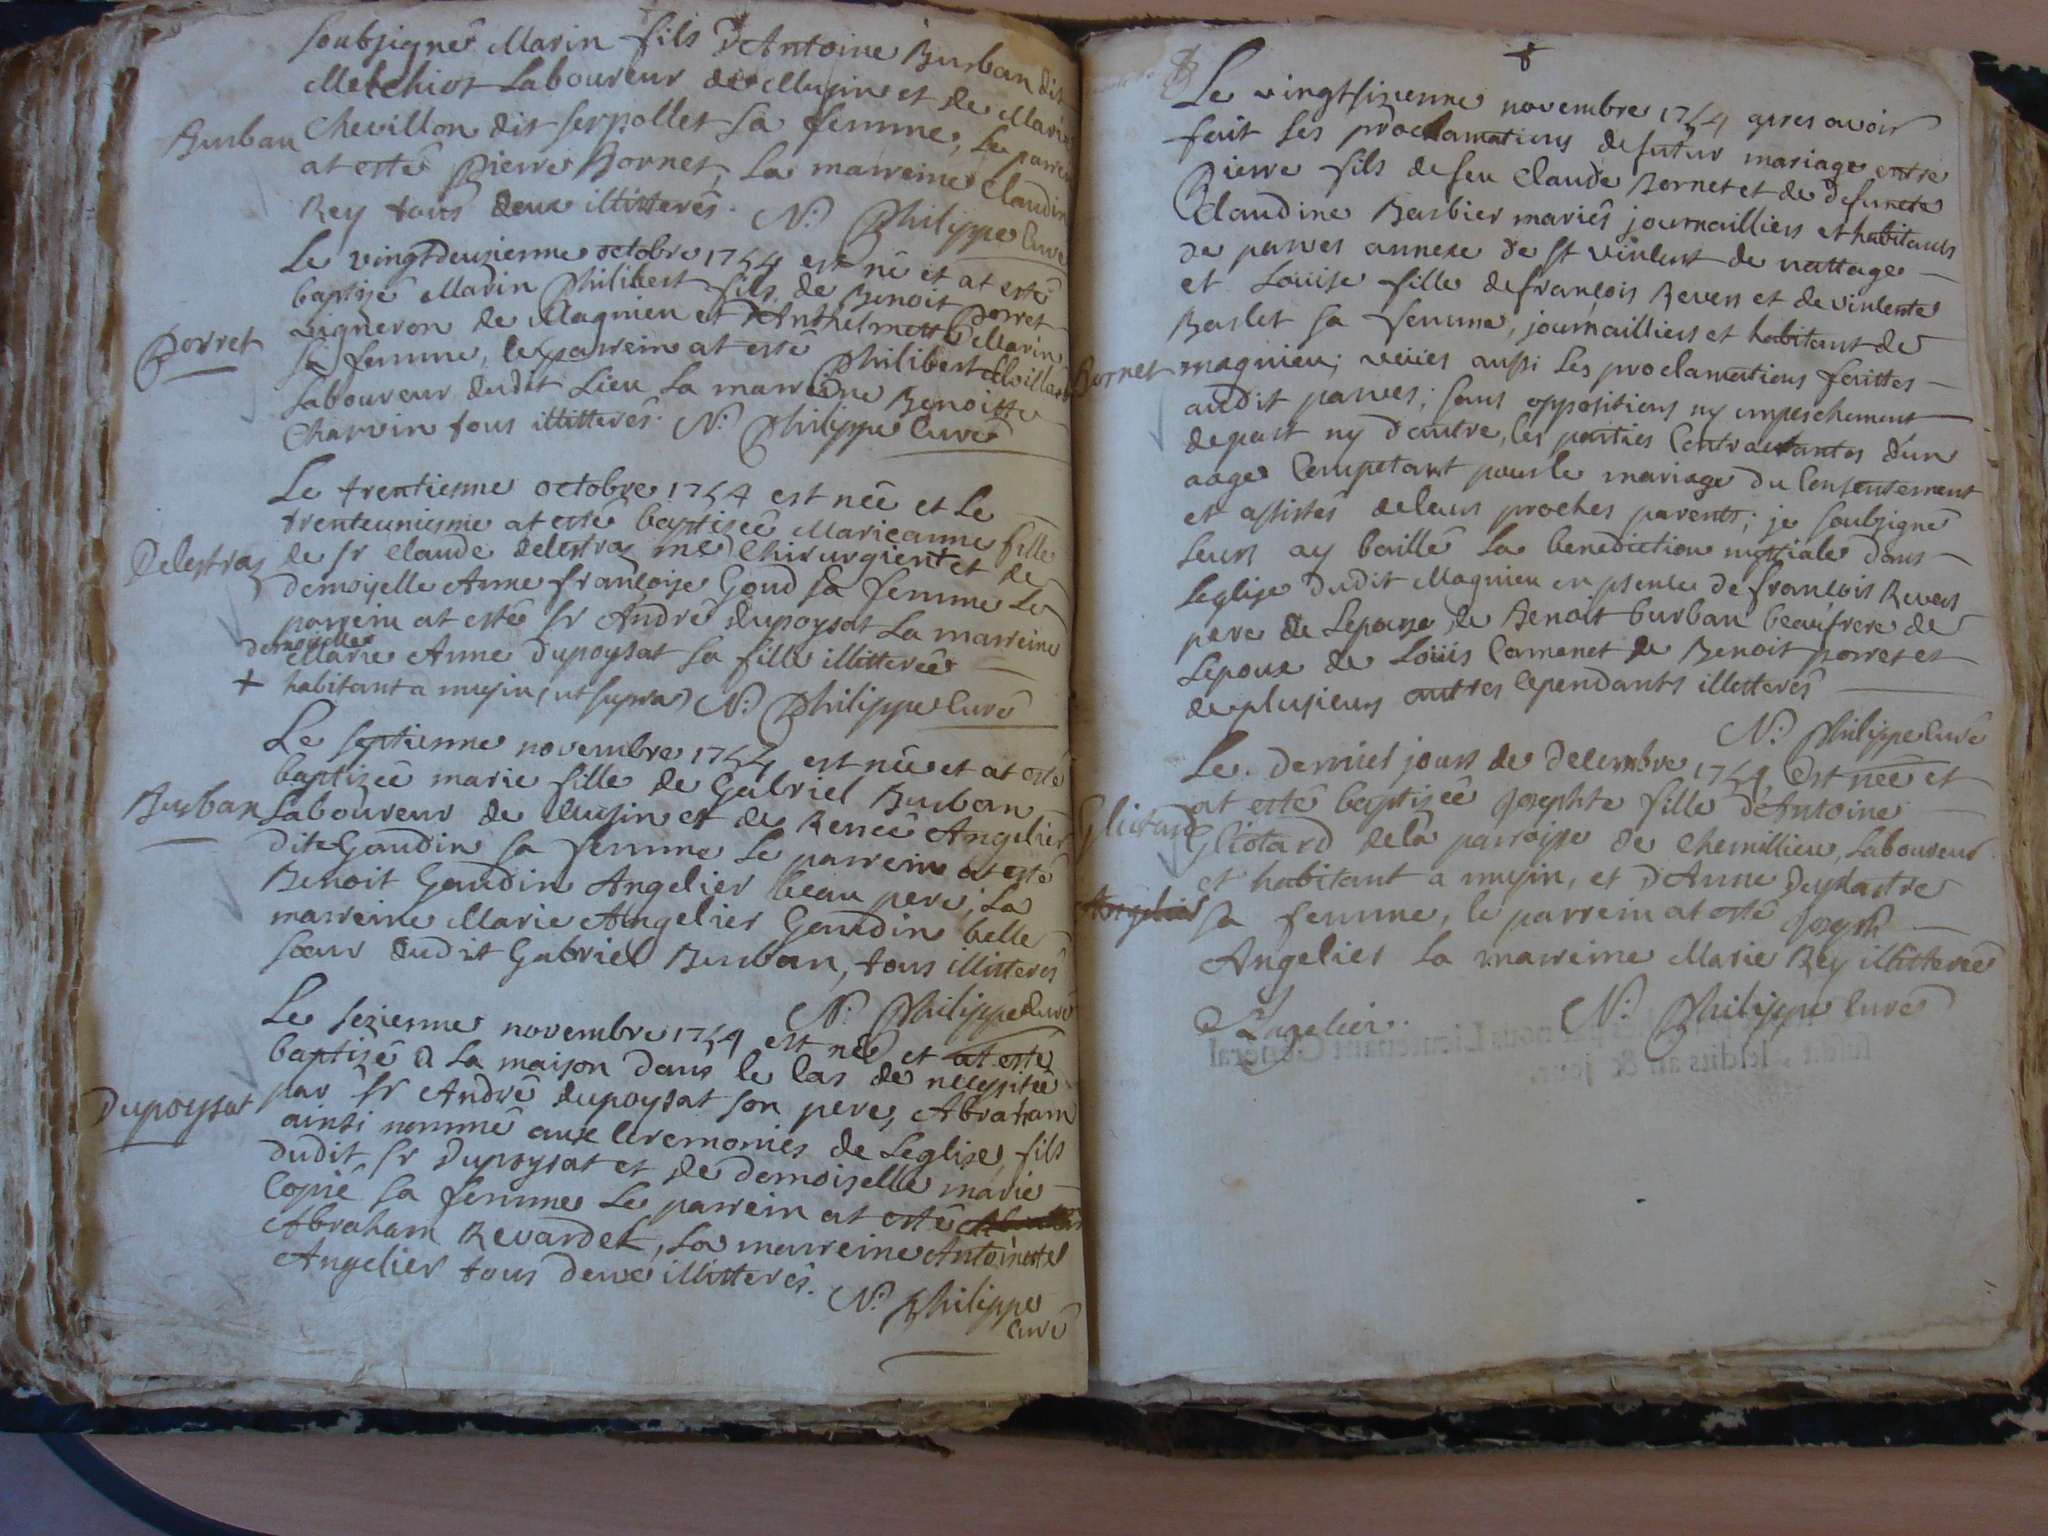 soubsigné Marin fils d'Antoine Burban dit
Melchiot Laboureur de Musin et de Marie
Burban
Chevillon dit serpollet sa femme, Le parrein
at esté Pierre Bornet, La marreine Claudine
Rey tous deux illitterés. N. Philippe Curé
Le vingtdeuxienne octobre 1754 est né et at esté
baptizé Marin Philibert fils de Benoit Porret
vigneron de Magnieu et d'Anthelmette Marin
Porret
sa femme, le parrein at esté Philibert
Laboureur dudit Lieu La marreine Benoitte
Charvin tous illitterés. N. Philippe Curé
Le trentienne octobre 1754 est née et Le
trenteunienne at esté baptizée Marieanne fille
Delestraz
de sr Claude Delestraz me Chirurgien et de
demoiselle Anne françoise Goud sa femme Le
parrein at esté sr André dupoysat La marreine
demoiselle
Marie Anne Dupoysat sa fille illitterée
+ habitant a musin (ut supra) N. Philippe Curé
Le septienne novembre 1754 est née et at esté
baptizée marie fille de Gabriel Burban
Burban
Laboureur de Musin et de Renée Angelier
dite Gaudin sa femme Le parrein at esté
Benoit Gaudin Angelier beau pere, La
marreine Marie Angelier Gaudin belle
sœur dudit Gabriel Burban, tous illitterés
N. Philippe Curé
Le sezienne novembre 1754 est né et at esté
baptizé a La maison dans le cas de necessité
Dupoysat
par sr André dupoysat son pere, Abraham
ainsi nommé aux Ceremonies de Leglise, fils
dudit sr Dupoysat et de demoiselle marie
Copié sa femme Le parrein at esté
Abraham Revardet, La marreine Antoinette
Angelier tous deux illitterés.
N. Philippe
curé
Le vingtsizienne novembre 1754 apres avoir
fait les proclamations de futur mariage entre
Pierre fils de feu Claude Bornet et de defuncte
Claudine Barbier mariés journailliers et habitants
de parves annexe de st vincent de nattage
et Louise fille de françois Revers et de vincente
Barlet sa femme, journailliers et habitant de
Bornet
magnieu; veües aussi Les proclamations faittes
audit parves; sans oppositions ny empeschement
de part ny d'autre, les parties Contractantes d'un
aage Competant pour le mariage du Consentement
et assistés de leurs proches parents; je soubsigné
Leurs ay baillé La benediction nuptiale dans
Leglise dudit Magnieu en psence de françois Revers
pere de Lepouse, de Benoit burban beaufrere de
Lepoux de Loüis Camenet de Benoit porret et
de plusieurs autres Cependants illitterés
N. Philippe Curé
Le dernier jours de Decembre 1754 est née et
at esté baptizée Josephte fille d'Antoine
Gliotard
Gliotard de la parroisse de Chemillieu, Laboureur
et habitant a musin, et d'Anne Deplastre
Angelier
sa femme, le parrein at esté joseph
Angelier La marreine Marie Rey illitterée
Angelier. N. Philippe Curé